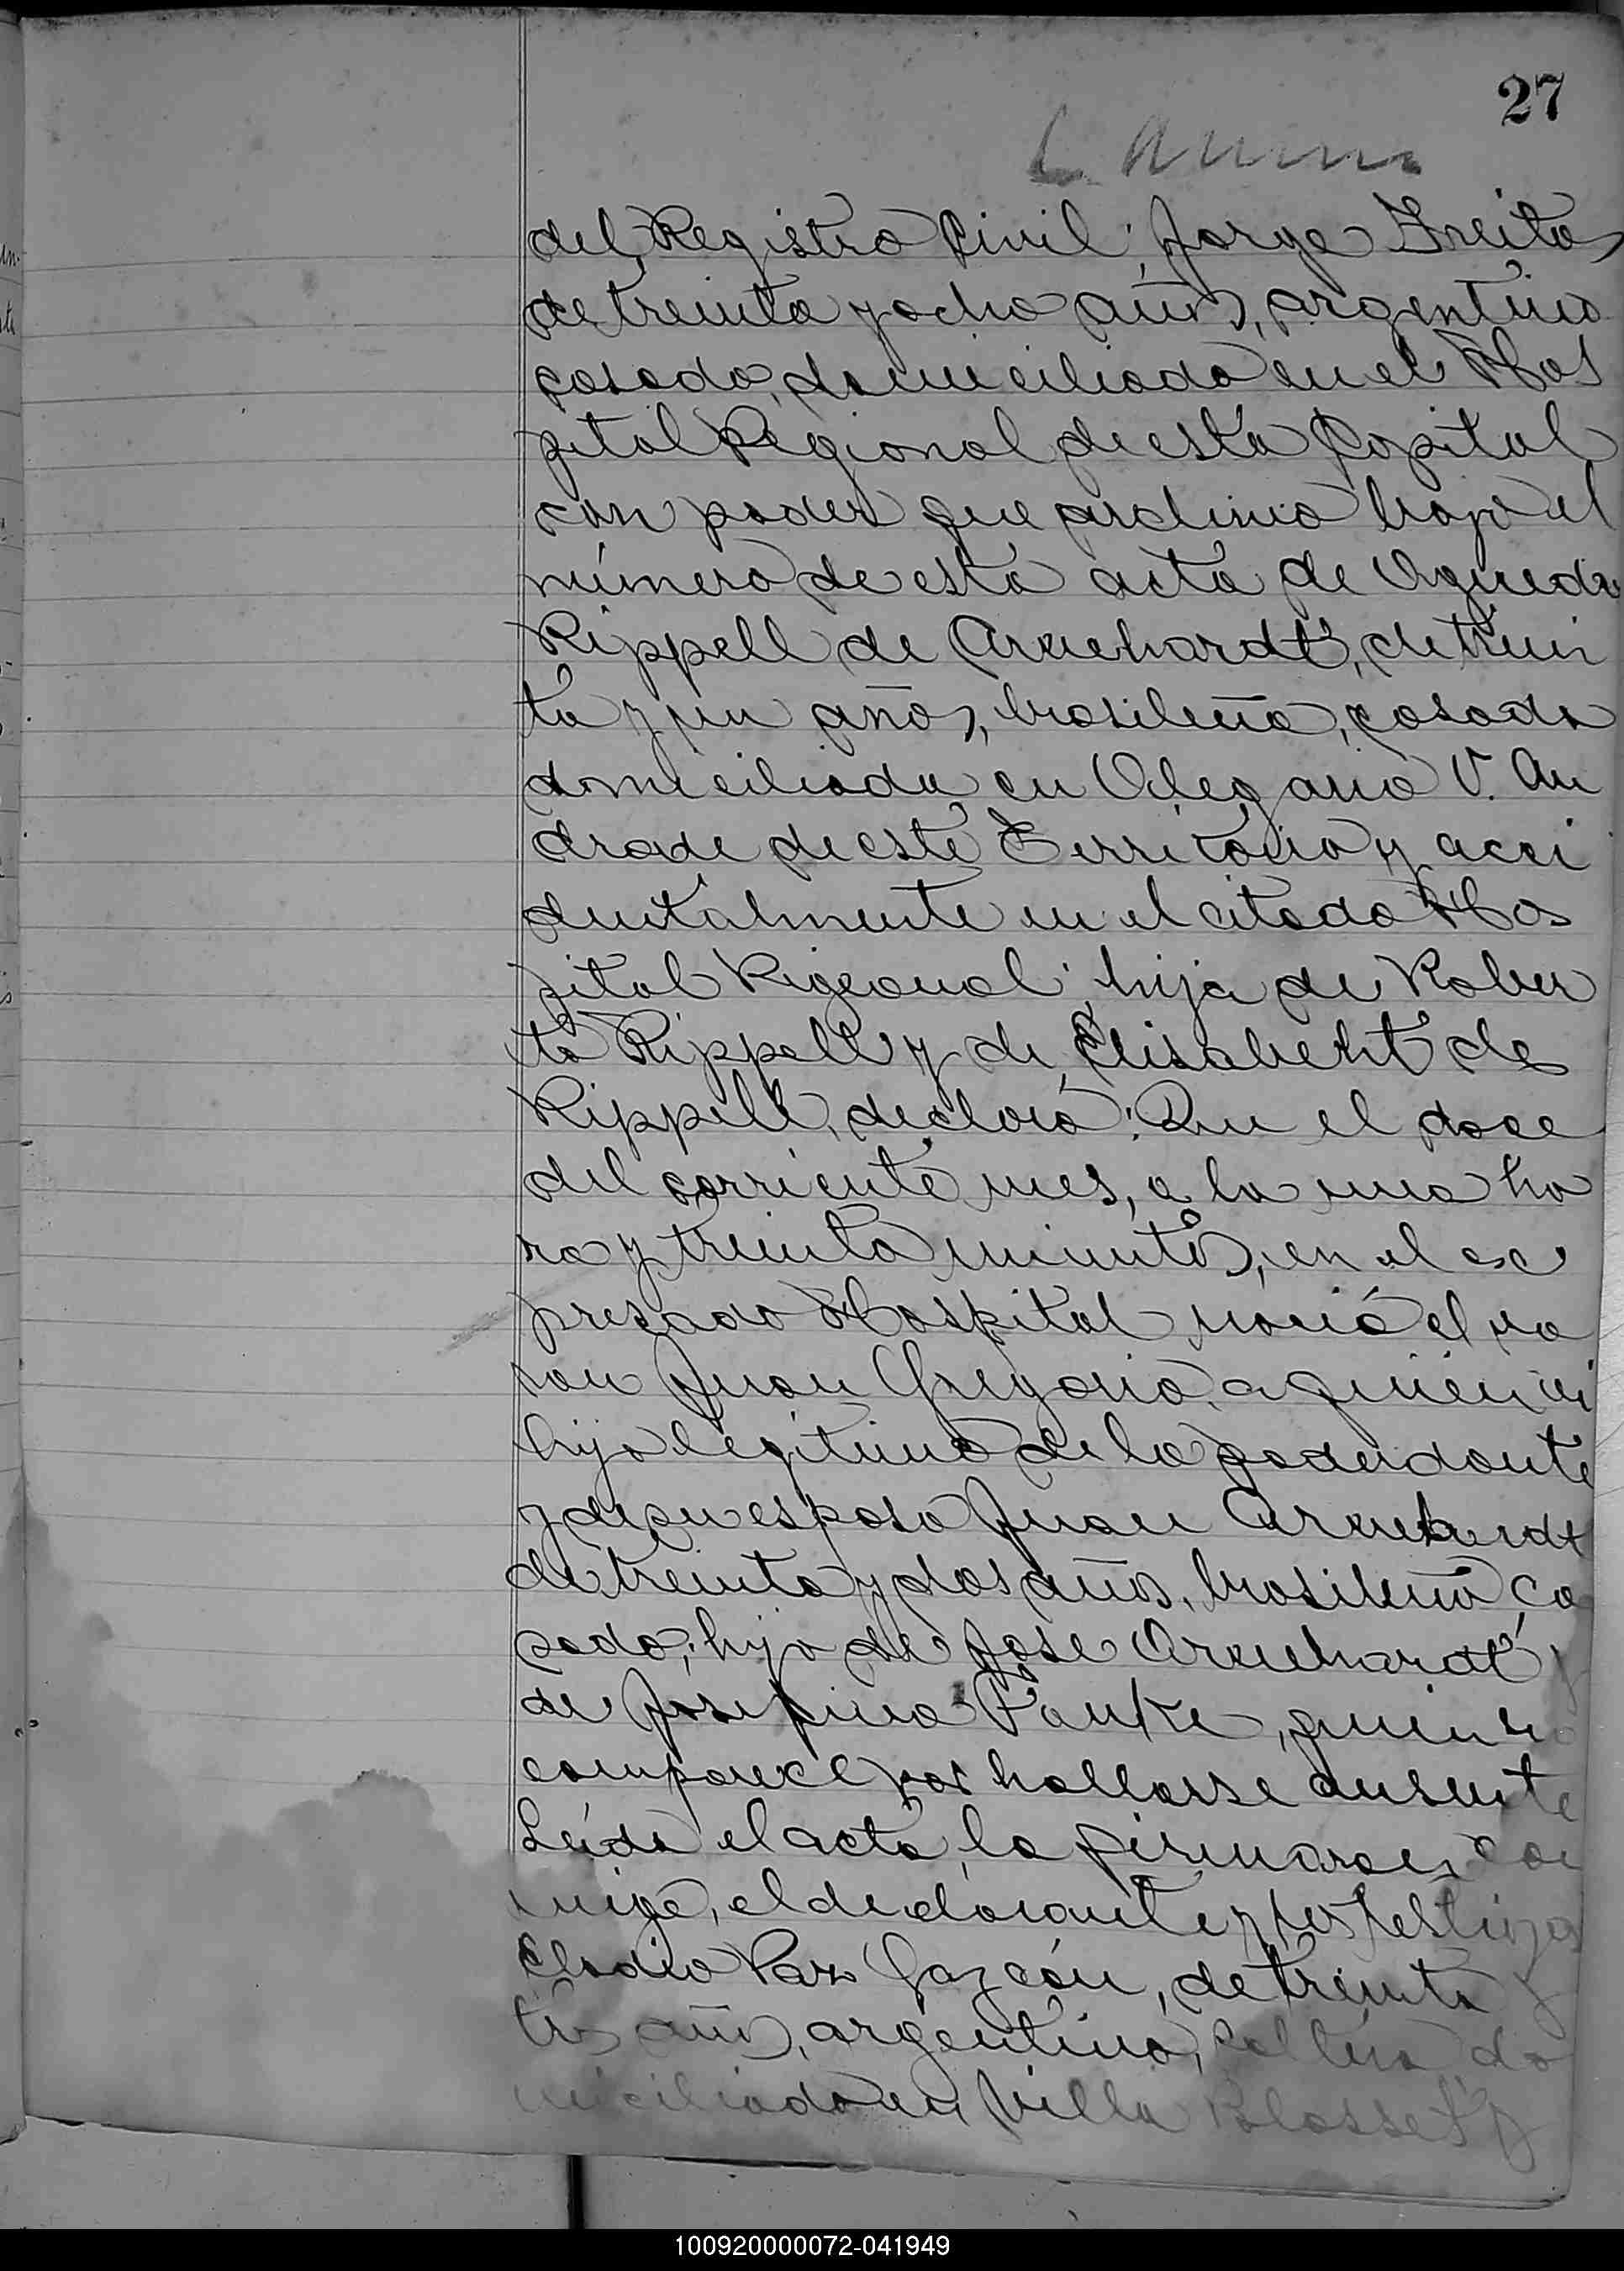 27
del Registro Civil, Jorge Freitas
de treinta y ocho años, argentino
casado, domiciliado en el Hos
pital Regional de esta Capital
con poder que archivo bajo el
número de esta acta de Agueda
Rippell de Arenhardt, de trein
ta y un años, brasileña, casada
domiciliada en Olegario V. An
drade de este Territorio y acci
dentalmente en el citado Hos
pital Rigeonal, hija de Rober
to Rippell y de Elisabeht de
Rippell, declaró: Que el doce
del corriente mes, a la una ho
ra y treinta minutos, en el ex
presado Hospital nació el va
ron Juan Gregorio, a quien vi
hijo legítimo de la poderdante
y de su esposo Juan Arenhardt
de treinta y dos años, brasileño, ca
sado, hijo de José Arenhardt y
de Josefina Pauke, quien no
comparece por hallarse ausente
Leída el acta, la firmaron con
migo, el declarante y los testigos
Eladio Paz Garzón, de treinta y
tres años, argentino, soltero do
miciliado en Villa Blosset y
100920000072-041949